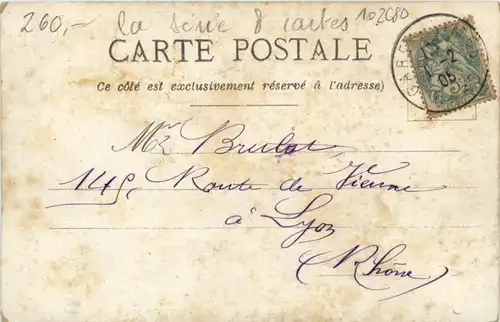 260,- la série 8 cartes 102680
CARTE POSTALE
(Ce côté est exclusivement réservé à l'adresse)
Mr Brulat
145, Route de Vienne
à Lyon
(Rhône)